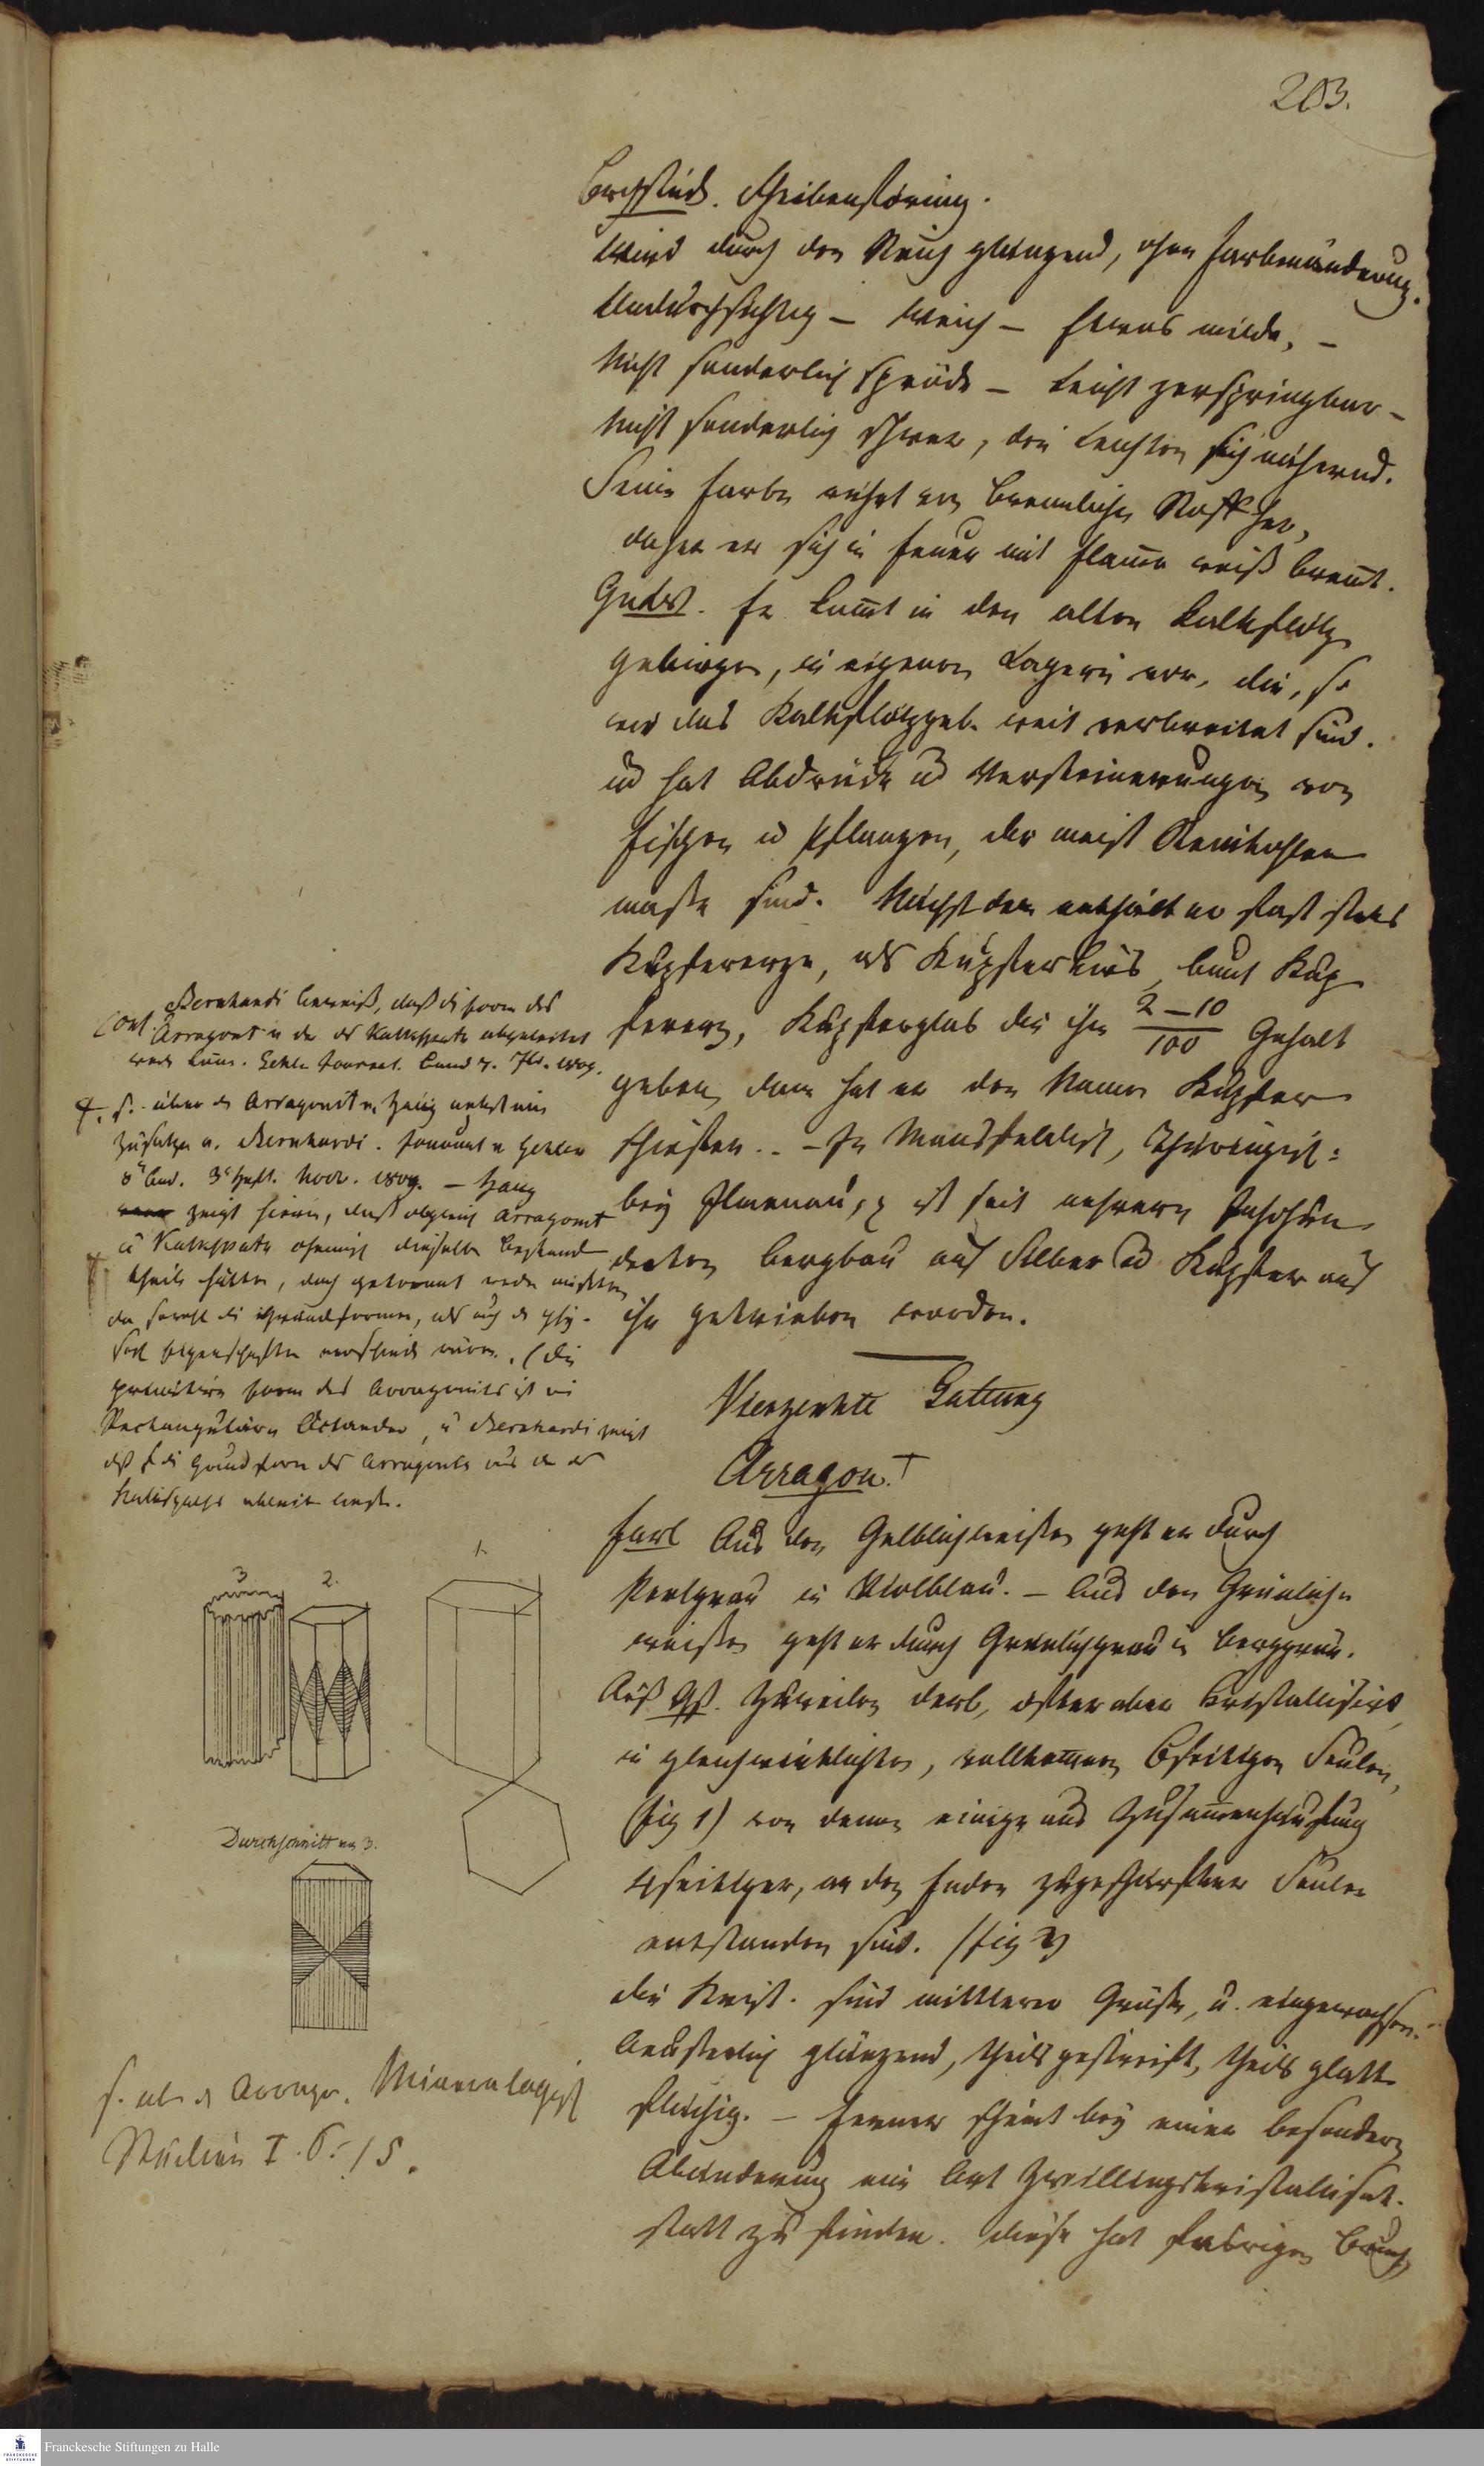 203.
Bruchstück. Scheibenförmig.
Wird durch den Strich glänzend, ohne Farbenänderung.
Undurchsichtig – Weich – Etwas milde, –
Nicht sonderlich spröde – Leicht zerspringbar –
Nicht sonderlich schwer, dem Leichten sich nähernd.
Seine Farbe rührt von brennlichen Stoff her,
daher er sich im Feuer mit Flam̄e weiß bren̄t.
Er kom̄t in den alten Kalkflötz
gebirgen, in eigenen Lagern vor, die, so
wie das Kalkflötzgeb. weit verbreitet sind.
ud hat Abdrücke ud Versteinerungen von
Fischen ud Pflanzen, der meist Steinkohlen
masse sind. Nächst dem enthält er fast stets
Kupfererze, als Kupferkies, bunt Kup
fererz, Kupferglas die ihm 2–10/100 Gehalt
geben, dann hat er den Namen Kupfer
schiefer. – Im Mansfeldisch, Thüringisch:
bey Ilmenau, ist seit mehrern Jahrhun
derten Bergbau auf Silber ud Kupfer auf
ihn getrieben worden.
Vierzehnte Gattung
Arragon. †
Farb Aus den Gelblichweißen geht er durch
Perlgrau in Violblau. – Aus den Grünlich
weißen geht er durch Grünlichgrau in Berggrün.
Zuweilen derb, öfter aber kristallisirt,
in gleichwinklichten, vollkom̄nen 6seitigen Säulen,
(fig 1) von denen einige aus Zusam̄enhäufung
4seitiger, an den Enden zugeschärfter Säulen
entstanden sind. (fig 2)
die Krist. sind mittlerer Größe, u. eingewachsen.
Aeußerlich glänzend, theils gestreift, theils glatt
flächig. – Ferner scheint bey einer besondern
Abänderung eine Art Zwillingskristallisat.
statt zu finden. diese hat fasrigen Bruch,
Bernhardi beweiß, daß die Form des
Arragont v. der des Kalkspaths abgeleitet
werd kön̄. Gehlen Journal. Band 8. 1809.
†. s. über d. Arragonit v. Haüy nebst ein
Zusatze v. Bernhardi. Journal v. Gehlen
8r Band. 3s Heft. Novb. 1809. – Haüy
zeigt hierin, daß obgleich Arragonit
u Kalkspath chemisch dieselbe Bestand
theile hätten, doch getrennt werden müßten,
da sowohl die Grundformen, als auch d. phy-
sisch Eigenschaften verschieden wären. (Die
primitive Form des Arragonits ist ein
Rectangulären Octaeder, u Bernhardi zeigt
daß die Grundform des Arragonits aus der des
Kalkspaths ableiten lasse.
3 2. 1.
Durchschnitt von 3.
s. üb. d. Arrago. Mineralogisch
Studien I. S. 15.